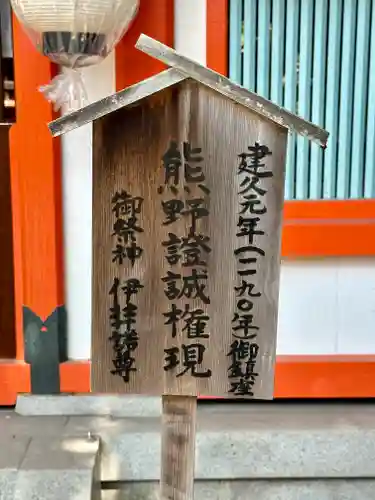 建久元年(一一九〇年御鎮座
熊野證誠権現
御祭神 伊弉諾尊